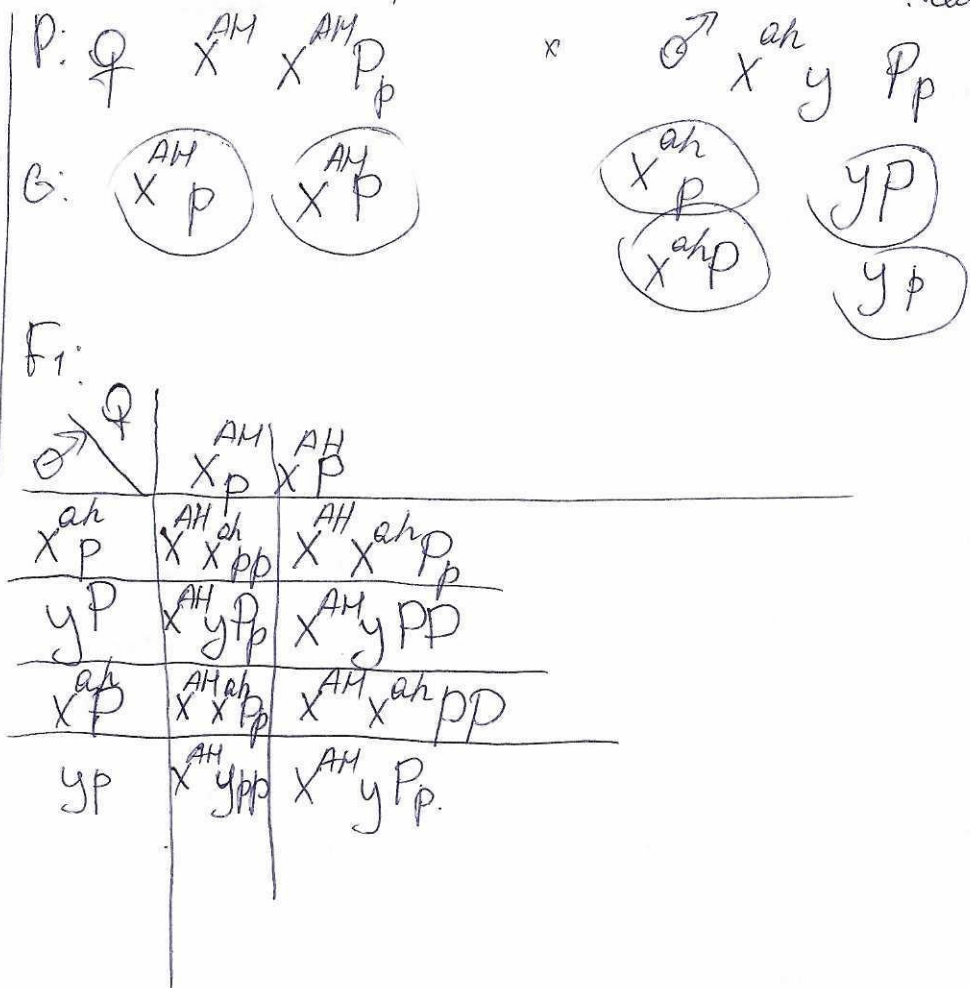 P: ♀ X^AH X^AH Pp x ♂ X^ah y Pp
G: X^AH p X^AH P X^ah p yP
X^ah P yp
F1:
♀
♂ X^AH p X^AH P
X^ah p X^AH X^ah pp X^AH X^ah Pp
yP X^AH y Pp X^AH y PP
X^ah P X^AH X^ah Pp X^AH X^ah PP
yp X^AH y pp X^AH y Pp.